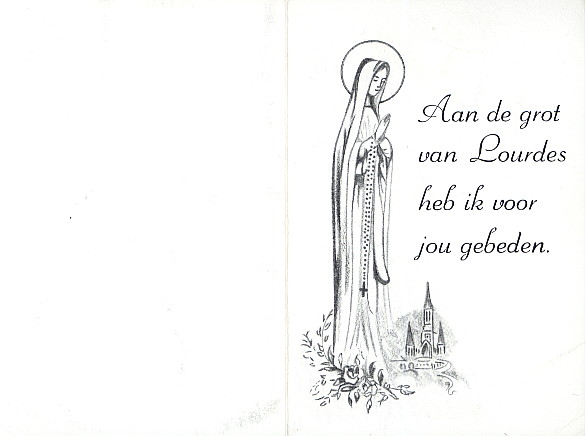 Aan de grot
van Lourdes
heb ik voor
jou gebeden.